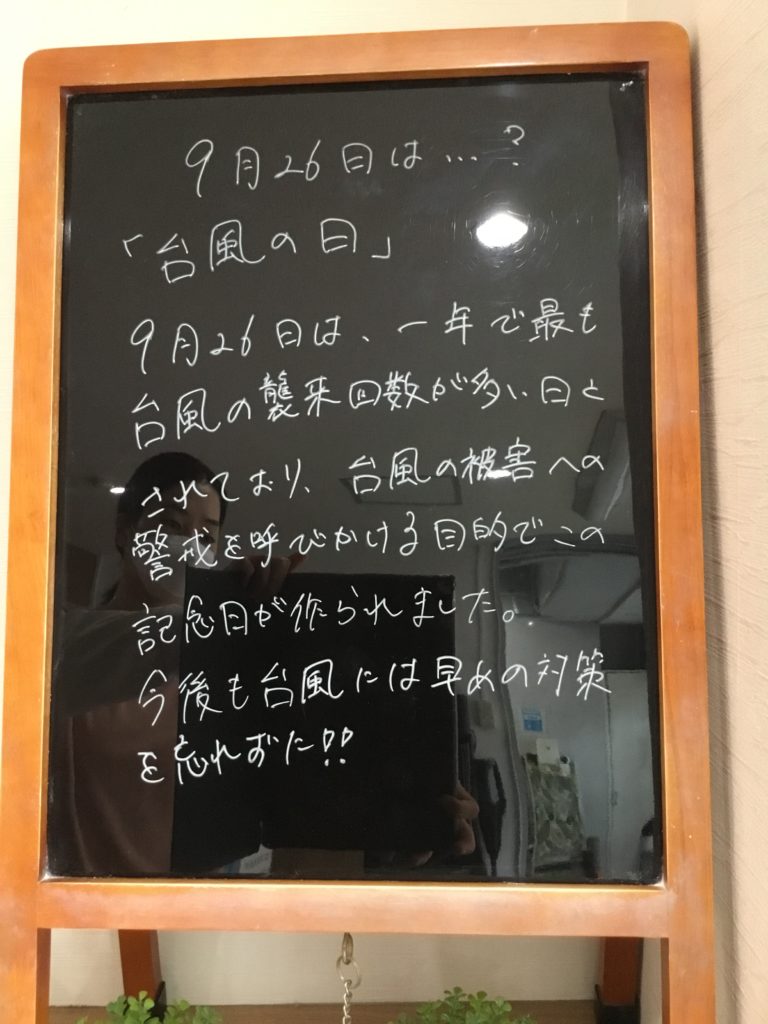 9月26日は…?
「台風の日」
9月26日は、一年で最も
台風の襲来回数が多い日と
されており、台風の被害への
警戒を呼びかける目的でこの
記念日が作られました。
今後も台風には早めの対策
を忘れずに!!